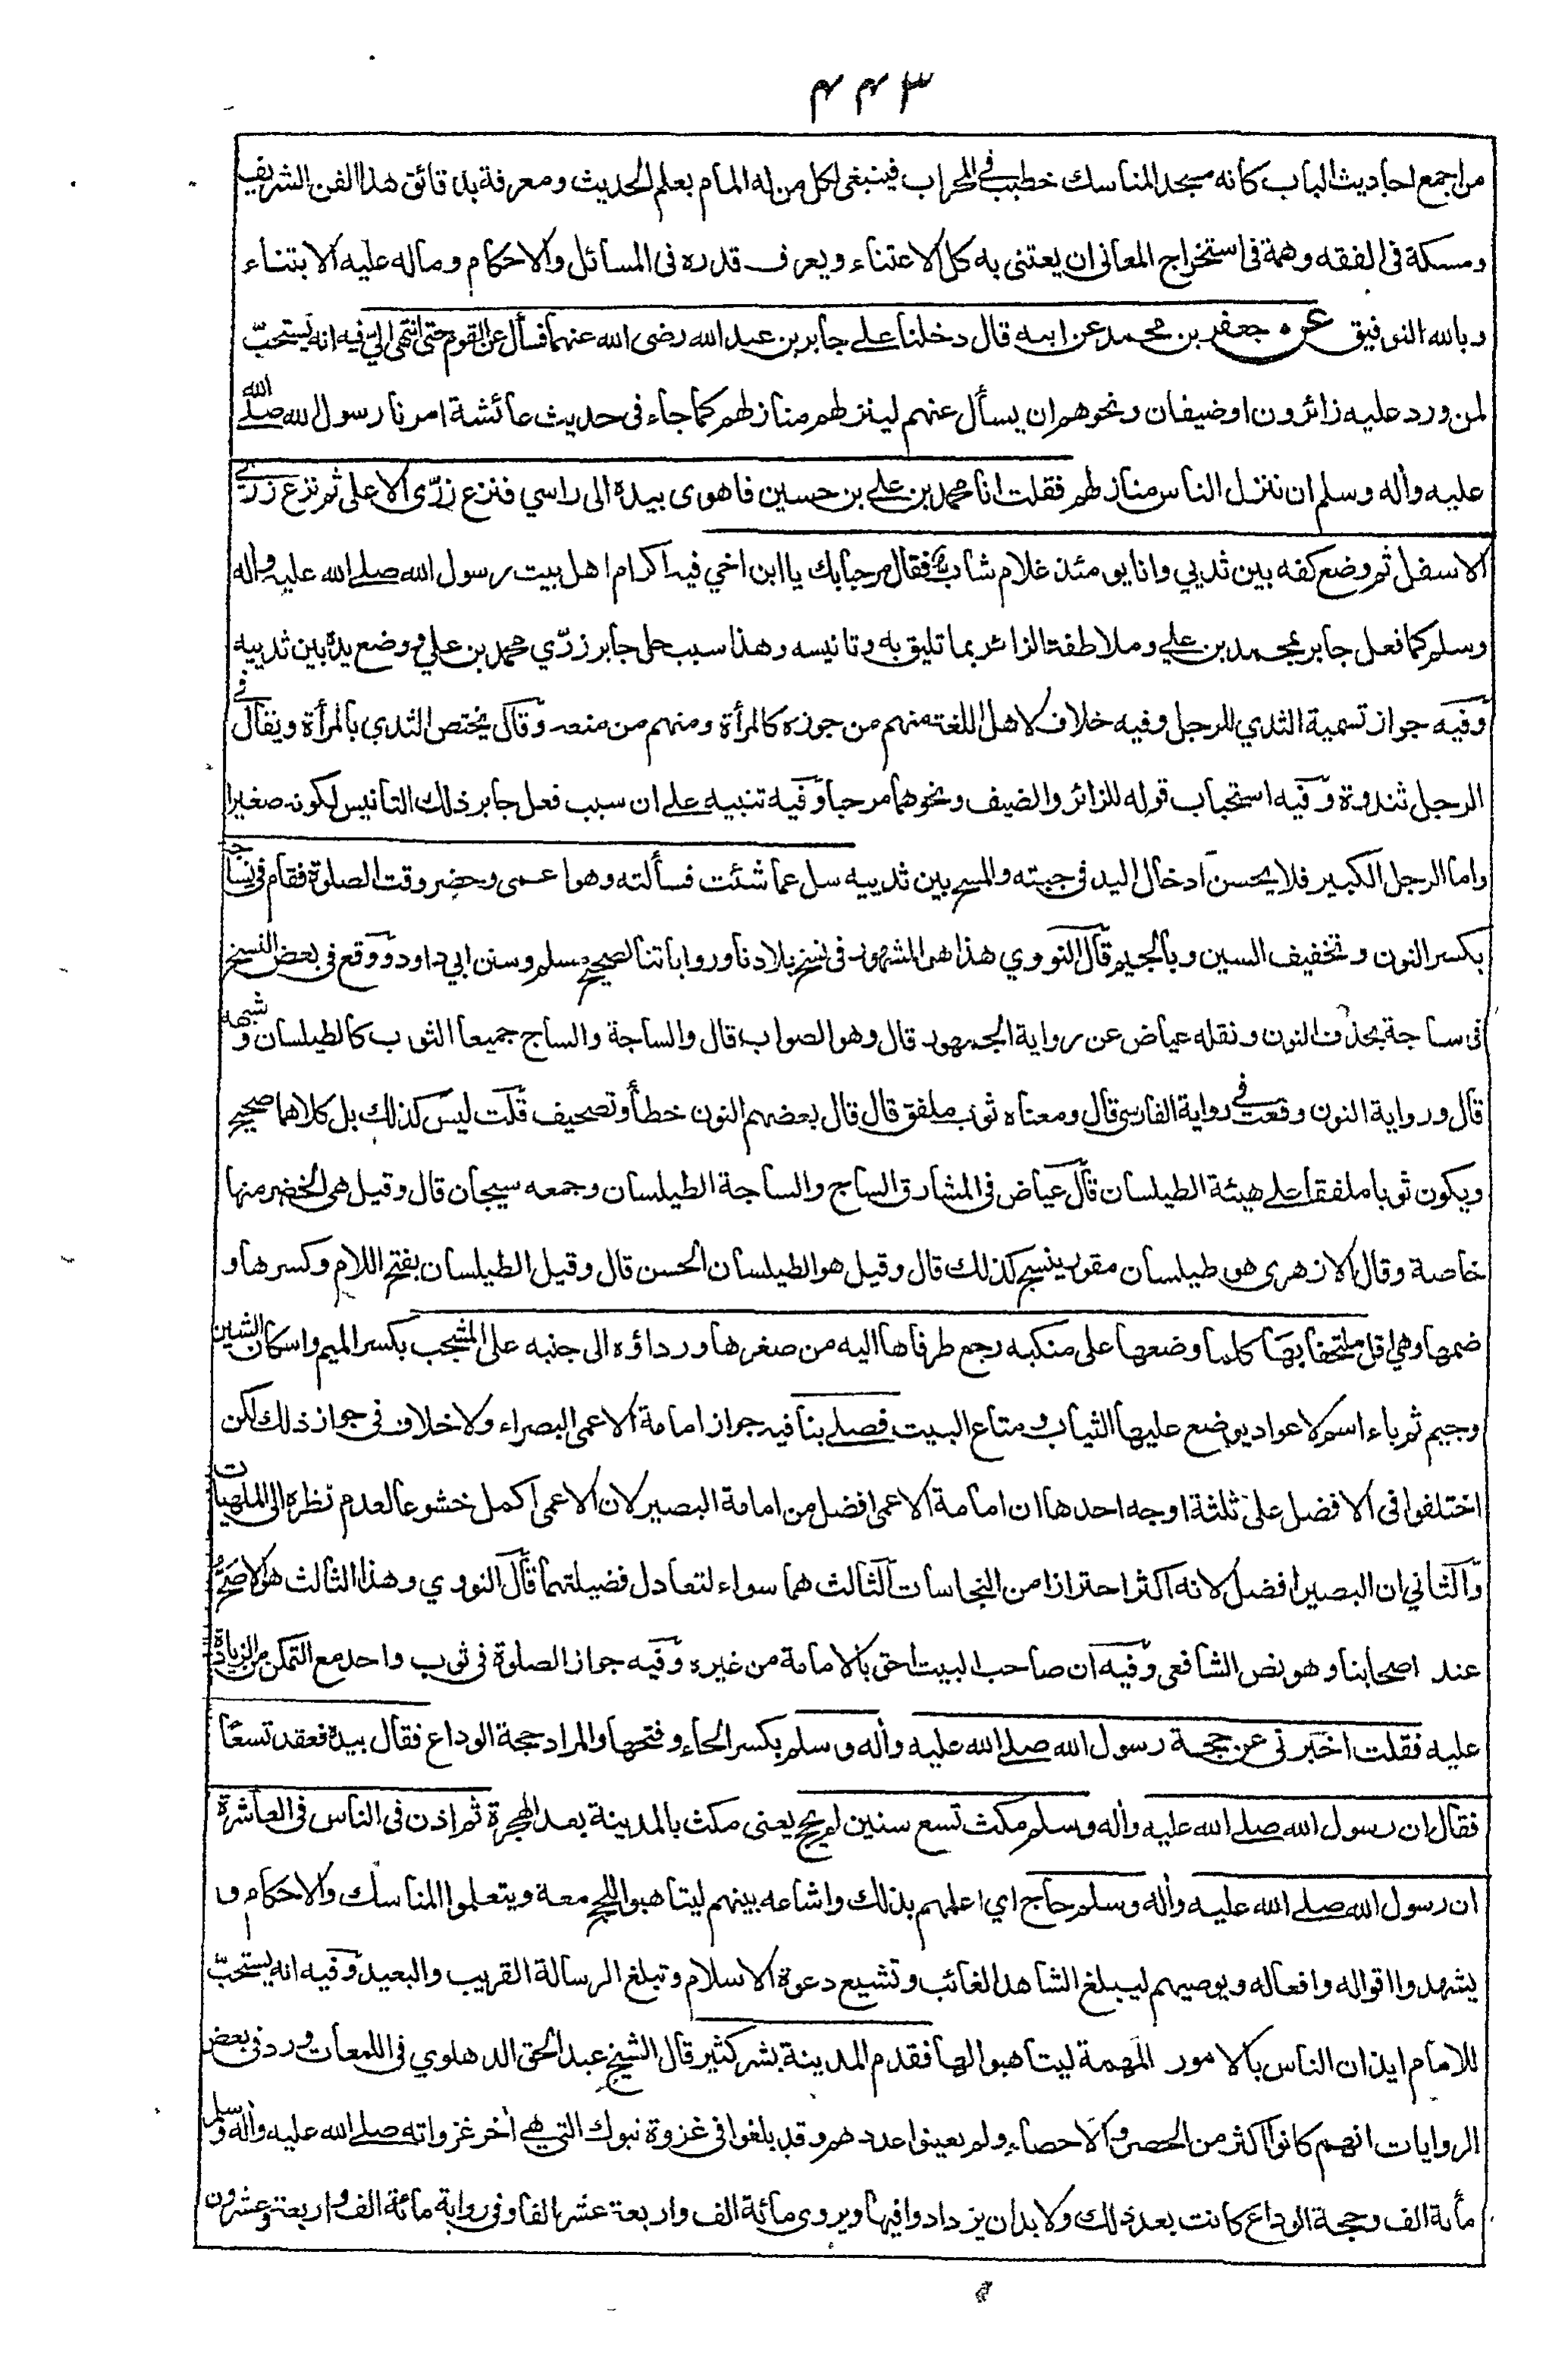 ٣٤٣
من اجمع احاديث الباب كانه مسجد المناسك خطيب فى المحراب فينبغى لكل من له المام بعلم الحديث ومعرفة بدقائق هذا الفن الشريف
ومسكة فى الفقه وهمة فى استخراج المعانى ان يعتنى به كل الاعتناء ويعرف قدره فى المسائل والاحكام وماله عليه الابتناء
وبالله التوفيق عن جعفر بن محمد عن ابيه قال دخلنا على جابر بن عبد الله رضى الله عنهما فسأل عن القوم حتى انتهى الى فيه انه يستحبّ
لمن ورد عليه زائرون او ضيفان ونحوهم ان يسأل عنهم لينزلهم منازلهم كما جاء فى حديث عائشة امرنا رسول الله صلى الله
عليه واله وسلم ان ننزل الناس منازلهم فقلت انا محمد بن على بن حسين فاهوى بيده الى راسي فنزع زرّى الاعلى ثم نزع زرّى
الاسفل ثم وضع كفه بين ثديي وانا يومئذ غلام شاب فقال مرحبا بك يا ابن اخي فيه اكرام اهل بيت رسول الله صلى الله عليه واله
وسلم كما فعل جابر بمحمد بن علي وملاطفة الزائر بما تليق به وتانيسه وهذا سبب حل جابر زرّي محمد بن علي ووضع يده بين ثدييه
وفيه جواز تسمية الثدي للرجل وفيه خلاف لاهل اللغة منهم من جوزه كالمرأة ومنهم من منعه وقال يختص الثدي بالمرأة ويقال فى
الرجل ثندوة وفيه استحباب قوله للزائر والضيف ونحوهما مرحبا وفيه تنبيه على ان سبب فعل جابر ذلك التانيس لكونه صغيرا
واما الرجل الكبير فلا يحسن ادخال اليد فى جيبته والمسح بين ثدييه سل عما شئت فسألته وهو اعمى وحضر وقت الصلوة فقام فى نساجة
بكسر النون وتخفيف السين وبالجيم قال النووي هذا هو المشهور فى نسخ بلادنا ورواياتنا لصحيح مسلم وسنن ابي داود ووقع فى بعض النسخ
فى ساجة بحذف النون ونقله عياض عن رواية الجمهور قال وهو الصواب قال والساجة والساج جميعا الثوب كالطيلسان وشبهه
قال ورواية النون وقعت فى رواية الفارسى قال ومعناه ثوب ملفق قال قال بعضهم النون خطأ وتصحيف قلت ليس كذلك بل كلاهما صحيح
ويكون ثوبا ملفقا على هيئة الطيلسان قال عياض فى المشارق الساج والساجة الطيلسان وجمعه سيجان قال وقيل هى الخضر منها
خاصة وقال الازهرى هو طيلسان مقور ينسج كذلك قال وقيل هو الطيلسان الحسن قال وقيل الطيلسان بفتح اللام وكسرها و
ضمها وهى اقل ملتحفا بها كلما وضعها على منكبه رجع طرفاها اليه من صغرها ورداؤه الى جنبه على المشجب بكسر الميم واسكان الشين
وجيم ثم باء اسم لاعواد يوضع عليها الثياب ومتاع البيت فصلى بنا فيه جواز امامة الاعمى البصراء ولا خلاف فى جواز ذلك لكن
اختلفوا فى الافضل على ثلثة اوجه احدها ان امامة الاعمى افضل من امامة البصير لان الاعمى اكمل خشوعا لعدم نظره الى الملهيات
والثاني ان البصير افضل لانه اكثر احترازا من النجاسات الثالث هما سواء لتعادل فضيلتهما قال النووي وهذا الثالث هو الاصح
عند اصحابنا وهو نص الشافعى وفيه ان صاحب البيت احق بالامامة من غيره وفيه جواز الصلوة فى ثوب واحد مع التمكن من الزيادة
عليه فقلت اخبرنى عن حجة رسول الله صلى الله عليه واله وسلم بكسر الحاء وفتحها والمراد حجة الوداع فقال بيده فعقد تسعًا
فقال ان رسول الله صلى الله عليه واله وسلم مكث تسع سنين لم يحج يعنى مكث بالمدينة بعد الهجرة ثم اذن فى الناس فى العاشرة
ان رسول الله صلى الله عليه واله وسلم حاج اي اعلمهم بذلك واشاعه بينهم ليتاهبوا للحج معه ويتعلموا المناسك والاحكام و
يشهدوا اقواله وافعاله ويوصيهم ليبلغ الشاهد الغائب وتشيع دعوة الاسلام وتبلغ الرسالة القريب والبعيد وفيه انه يستحبّ
للامام ايذان الناس بالامور المهمة ليتاهبوا لها فقدم المدينة بشر كثير قال الشيخ عبد الحق الدهلوي فى اللمعات ورد فى بعض
الروايات انهم كانوا اكثر من الحصر والاحصاء ولم يعينوا عددهم وقد بلغوا فى غزوة تبوك التي هي أخر غزواته صلى الله عليه واله وسلم
مأئة الف وحجة الوداع كانت بعد ذلك ولا بد ان يزدادوا فيها ويروى مائة الف واربعة عشر الفا وفى رواية مائة الف واربعة وعشرون